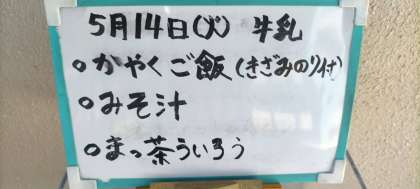 5月14日(火) 牛乳
○かやくご飯(きざみのり付)
○みそ汁
○まっ茶ういろう